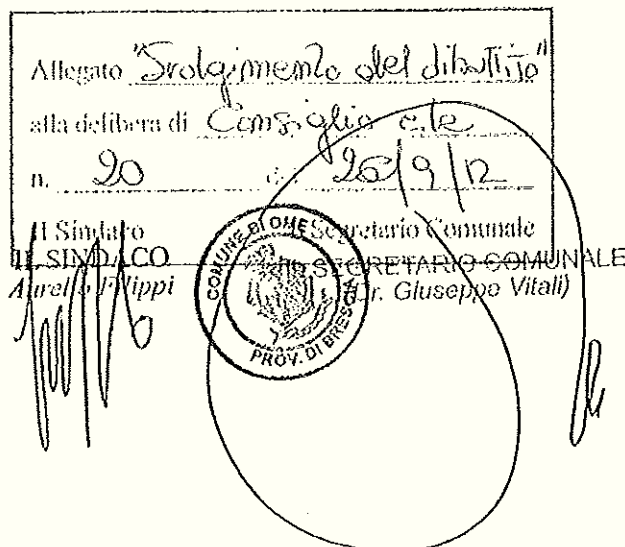 Allegato "Svolgimento del dibattito"
alla delibera di Consiglio c.le
n. 20 del 26/9/12
Il Sindaco Il Segretario Comunale
IL SINDACO IL SEGRETARIO COMUNALE
Aurelio Filippi (Dr. Giuseppe Vitali)
COMUNE DI OME
PROV. DI BRESCIA